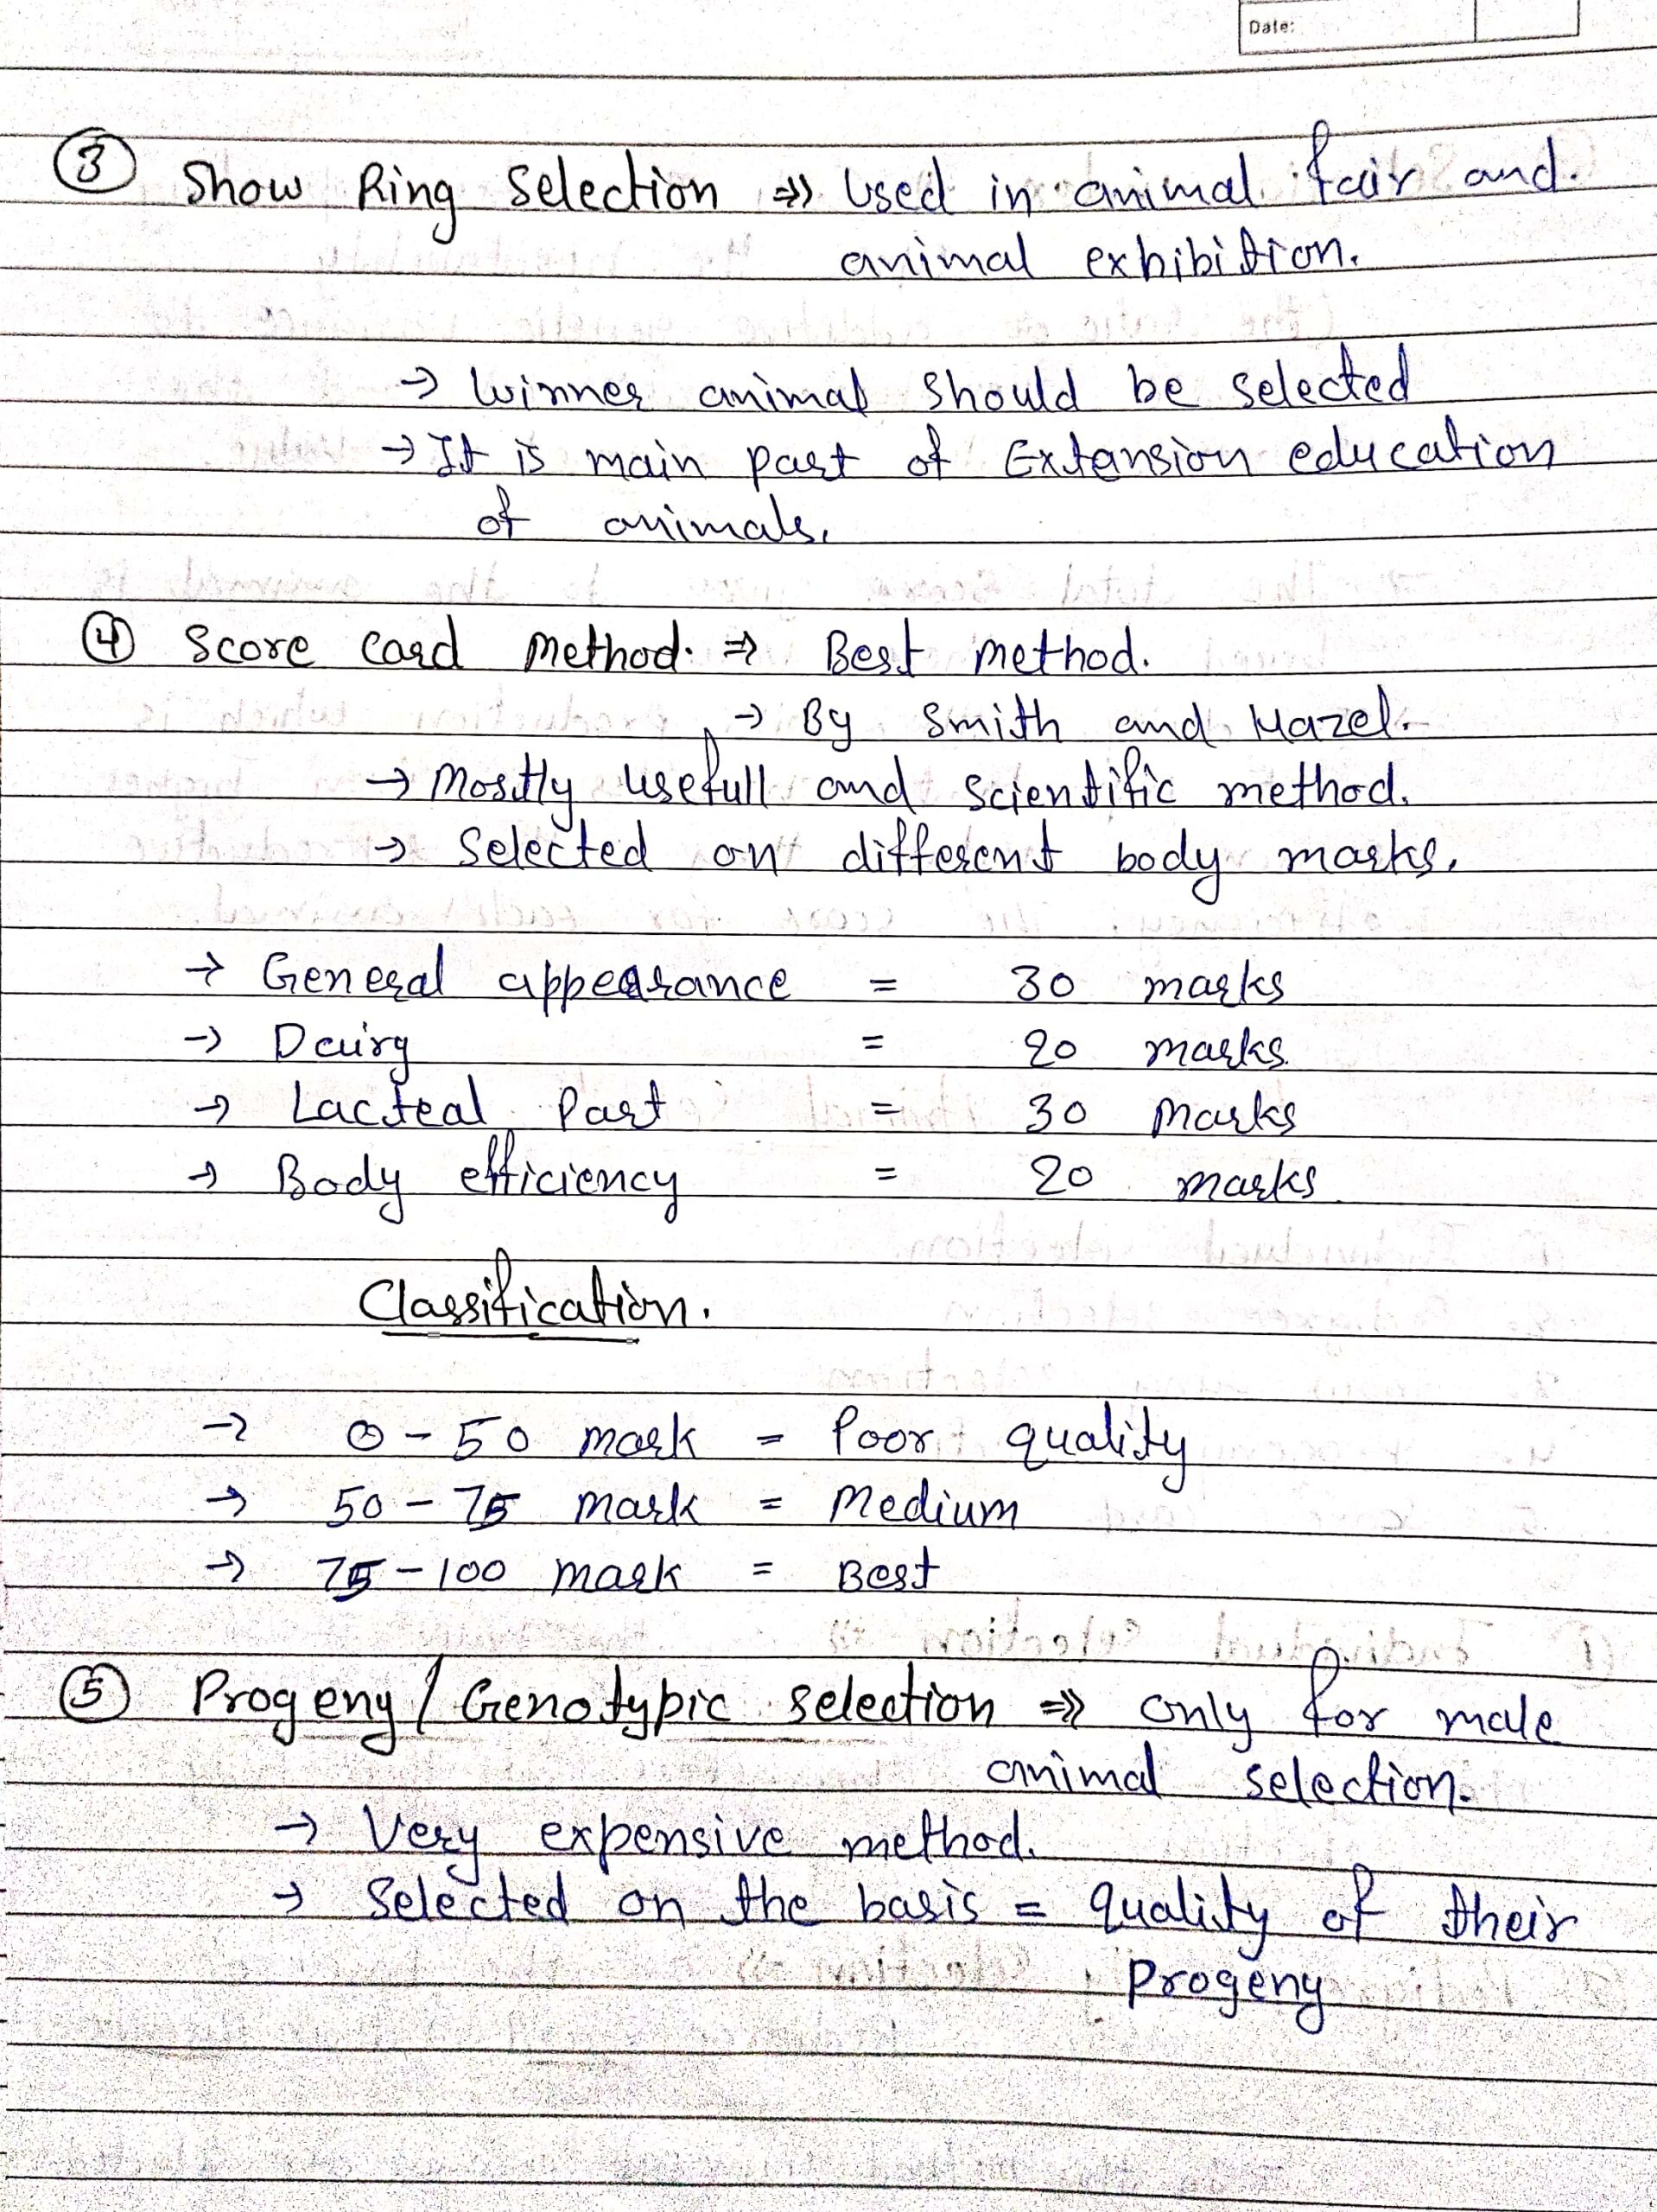 Date:
③ Show Ring Selection ⇒ Used in animal fair and.
animal exhibition.
→ Winner animal should be selected
→ It is main part of Extension education
of animals.
④ Score Card Method. ⇒ Best method.
→ By Smith and Hazel.
→ Mostly usefull and scientific method.
→ Selected on different body marks.
→ General appearance = 30 marks
→ Dairy = 20 marks
→ Lacteal Part = 30 Marks
→ Body efficiency = 20 marks
Classification.
→ 0-50 mark = Poor quality
→ 50-75 mark = Medium
→ 75-100 mark = Best
⑤ Progeny / Genotypic selection ⇒ only for male
animal selection.
→ Very expensive method.
→ Selected on the basis = quality of their
Progeny